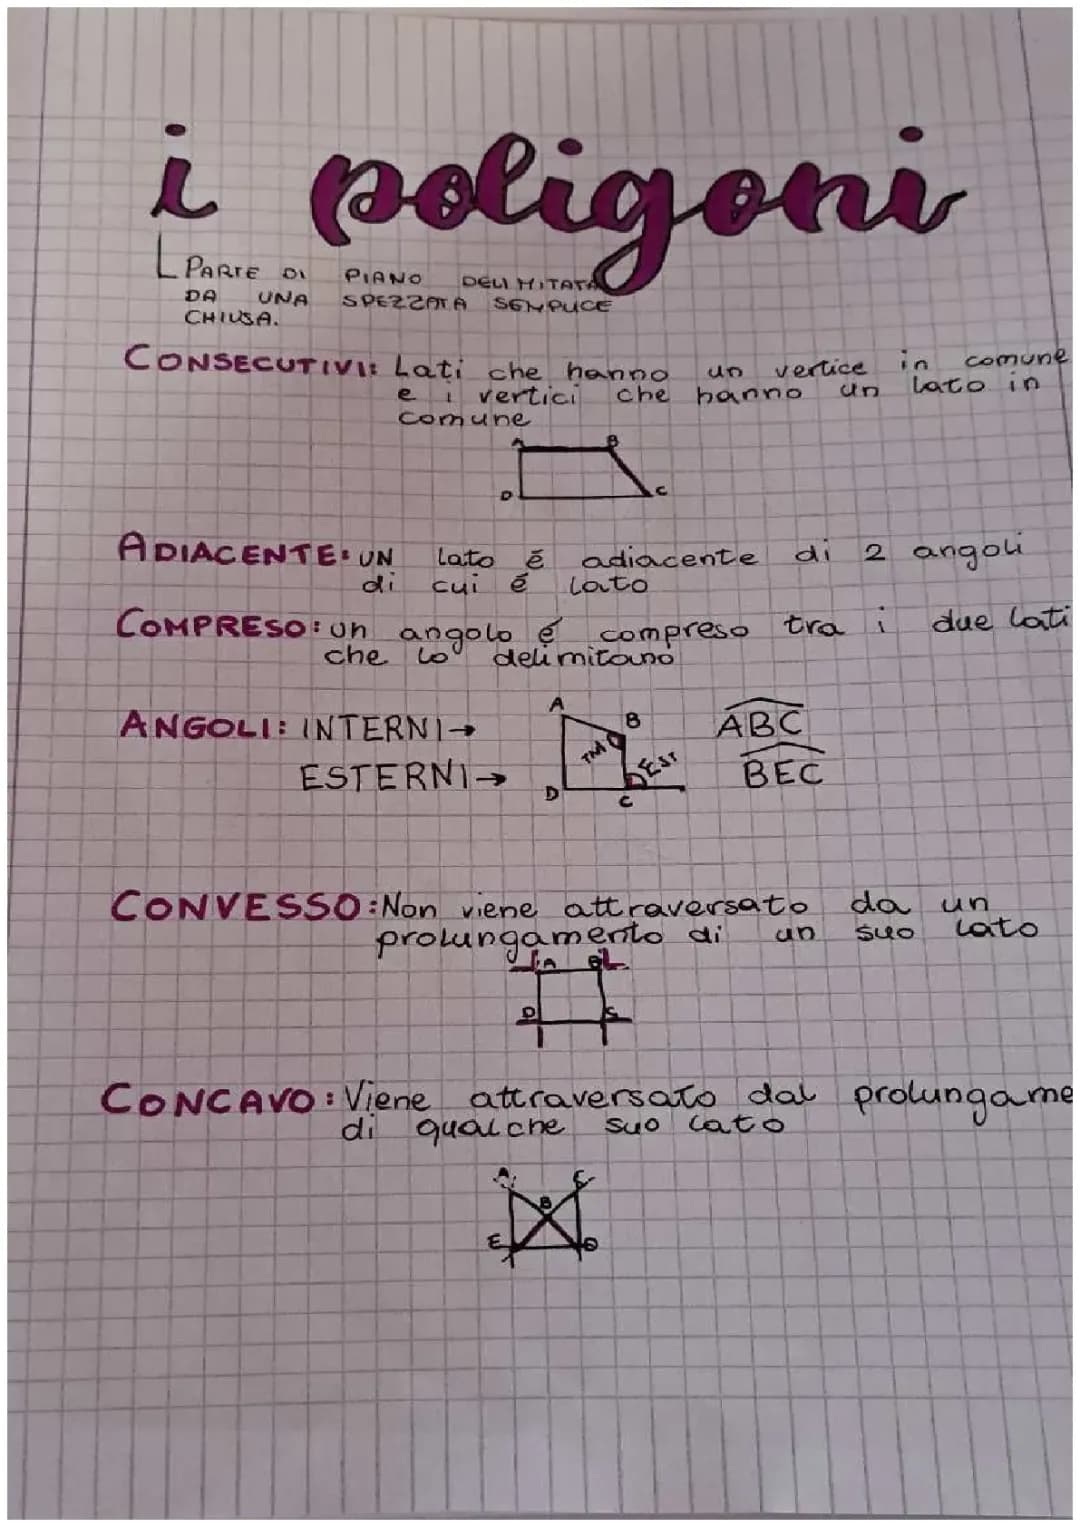 i poligoni
PARTE DI PIANO DELIMITATA
DA UNA SPEZZATA SEMPLICE
CHIUSA.
CONSECUTIVI: Lati che hanno un vertice in comune
e i vertici che hanno un lato in
comune
A B
D C
ADIACENTE: UN lato è adiacente di 2 angoli
di cui é lato
COMPRESO: un angolo é compreso tra i due lati
che lo delimitano
ANGOLI: INTERNI→ A B ABC
ESTERNI→ D C EST BEC
CONVESSO: Non viene attraversato da un
prolungamento di un suo lato
A B
D
CONCAVO: Viene attraversato dal prolungame
di qualche suo lato
A C
B
E D